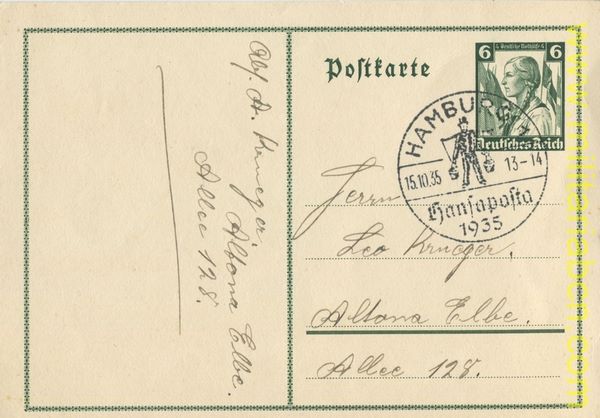 Postkarte
6 Deutsche Nothilfe 6
Deutsches Reich
HAMBURG
15.10.35
13-14
Hansaposta
1935
Abs. A. Krueger
Altona Elbe.
Allee 128.
Herrn
Leo Krueger.
Altona Elbe.
Allee 128.